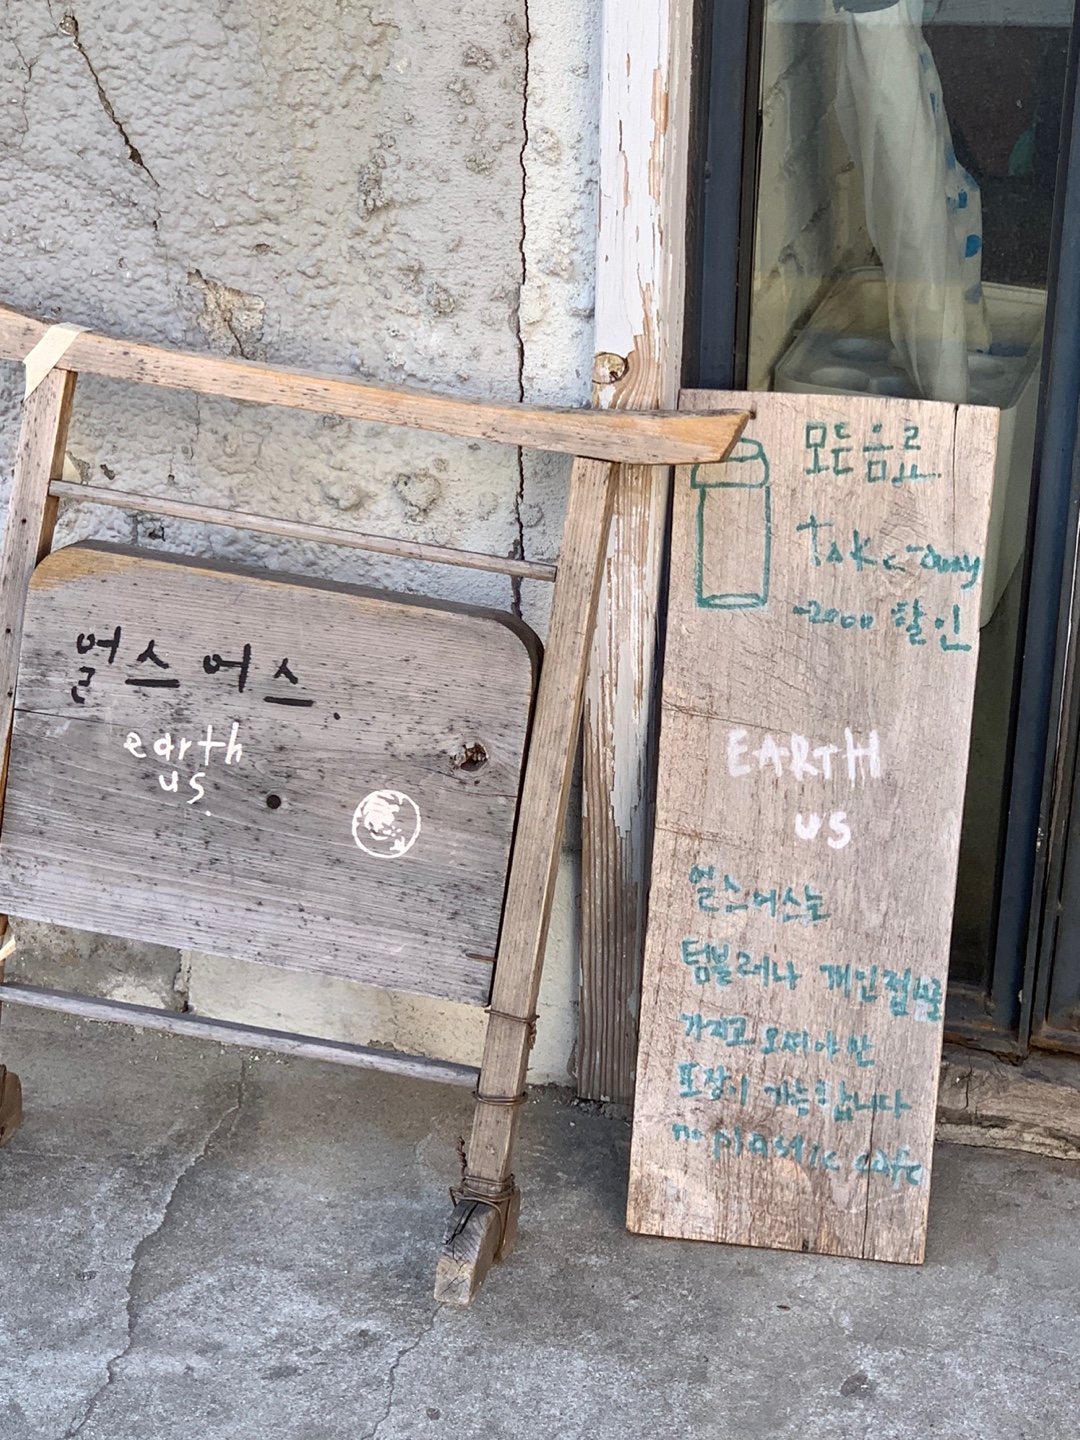 얼스어스.
earth
us.
모든음료
Take-away
-2000 할인
EARTH
us
얼스어스는
텀블러나 개인접시를
가지고 오셔야만
포장이 가능합니다
no plastic cafe